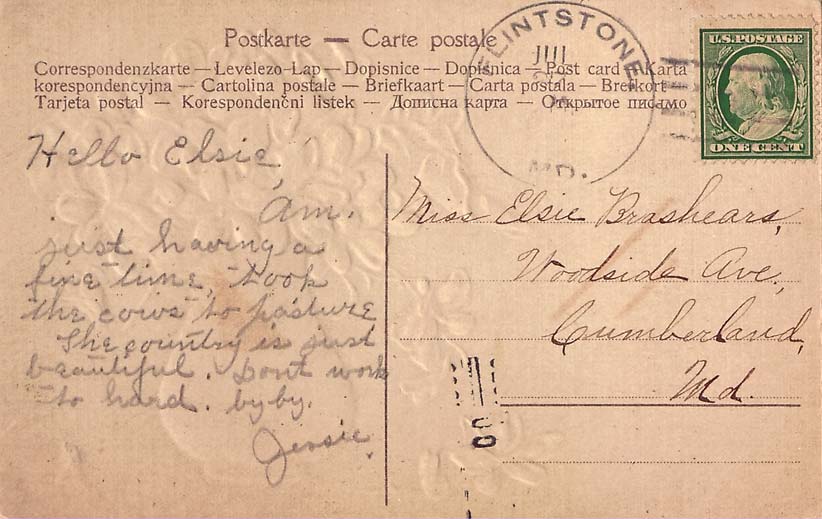 Postkarte — Carte postale
Correspondenzkarte — Levelezo-Lap — Dopisnice — Dopisnica — Post card — Karta
korespondencyjna — Cartolina postale — Briefkaart — Carta postala — Brefkort —
Tarjeta postal — Korespondenčni listek — Дописна карта — Открытое письмо
FLINTSTONE,
MD.
U.S. POSTAGE
ONE CENT
Hello Elsie,
Am.
just having a
fine time, took
the cows to pasture
The country is just
beautiful. Dont work
to hard. by by.
Jessie.
Miss Elsie Brashears,
Woodside Ave,
Cumberland,
Md.